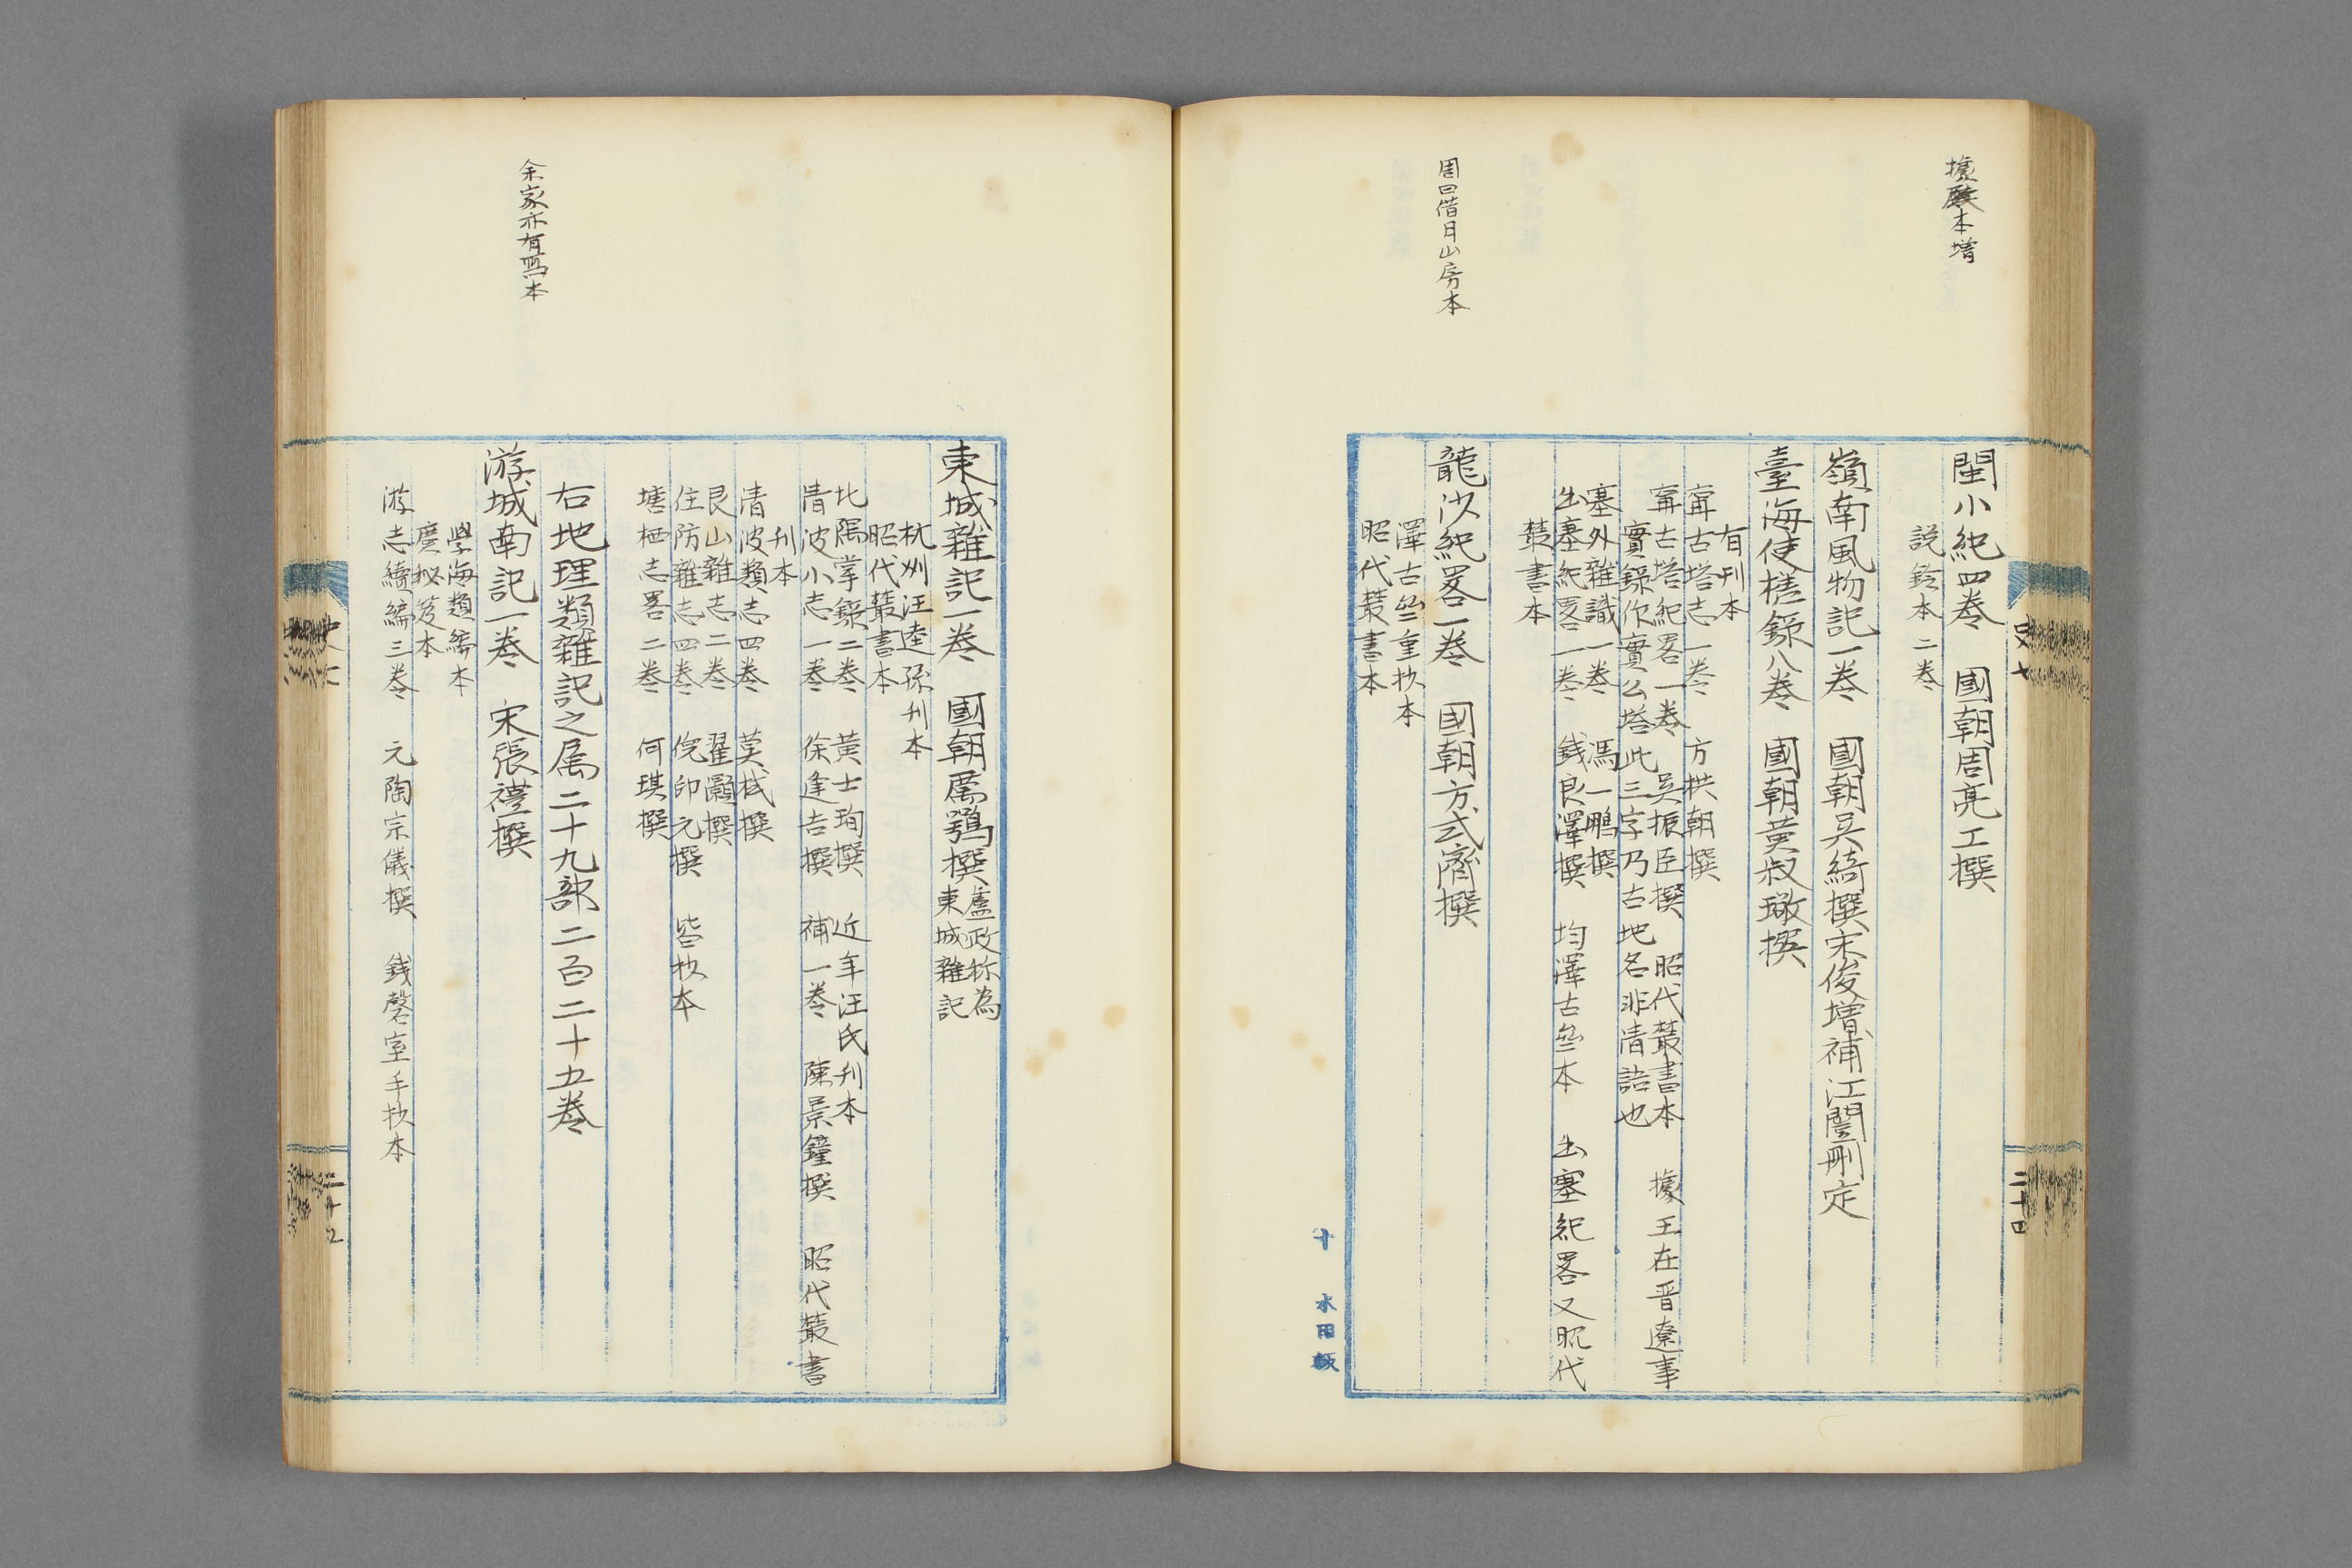 據殿本增
閩小紀四卷 國朝周亮工撰
說鈴本二卷
嶺南風物記一卷 國朝吳綺撰宋俊增補江闓刪定
臺海使槎錄八卷 國朝黃叔璥撰
有刊本
寗古塔志一卷 方拱朝撰
寗古塔紀畧一卷 吳振臣撰 昭代叢書本 據王在晋遼事
實錄作實公塔此三字乃古地名非清語也
塞外雜識一卷 馮一鵬撰
出塞紀畧一卷 錢良澤撰 均澤古叄本 出塞紀畧又昭代
叢書本
周曰借月山房本
龍沙紀畧一卷 國朝方式濟撰
澤古叄重抄本
昭代叢書本
史七
二十四
十 水田版
東城雜記一卷 國朝厲鶚撰盧政称為東城雜記
杭州汪逵孫刊本
昭代叢書本
北隅掌錄二卷 黃士珣撰 近年汪氏刊本
清波小志一卷 徐逢吉撰 補一卷 陳景鐘撰 昭代叢書
刊本
清波類志四卷 莫栻撰
艮山雜志二卷 翟灝撰
住防雜志四卷 倪印元撰 皆抄本
塘栖志畧二卷 何琪撰
右地理類雜記之属二十九部二百二十五卷
余家亦有寫本
游城南記一卷 宋張禮撰
學海類編本
廣秘笈本
游志續編三卷 元陶宗儀撰 錢磬室手抄本